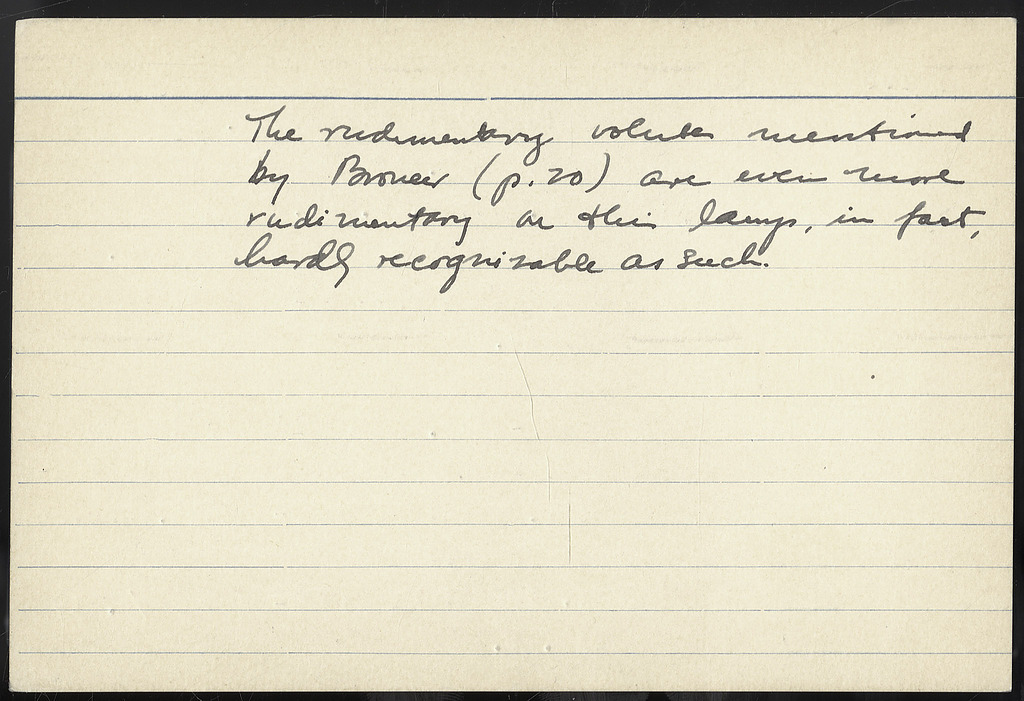 The rudimentary volutes mentioned
by Broneer (p. 20) are even more
rudimentary on this lamp, in fact,
hardly recognizable as such.